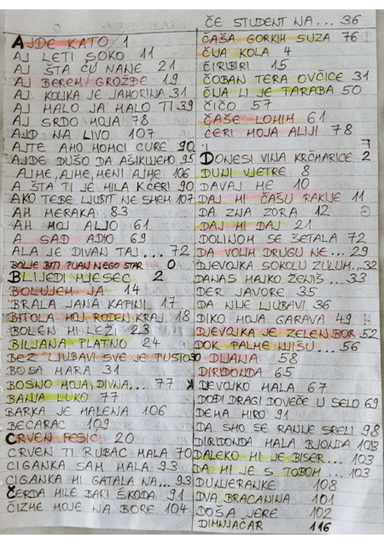 AJDE KATO 1
AJ LETI SOKO 11
AJ ŠTA ĆU NANE 21
AJ BEREM GROŽĐE 19
AJ KOLIKA JE JAHORINA 31
AJ MALO JA MALO TI 39
AJ SRDO MOJA 78
AJD NA LIVO 107
AJTE AMO MOMCI CURE 90
AJDE DUŠO DA AŠIKUJEMO 95
AJME, AJME, MENI AJME 106
A ŠTA TI JE MILA KĆERI 90
AKO TEBE LJUBIT NE SMEM 107
AH MERAKA 83
AH MOJ ALJO 61
A SAD ADIO 69
ALA JE DIVAN TAJ... 72
BOLJE BITI PIJAN NEGO STAR 0
BLIJEDI MJESEC 2
BOLUJEM JA 14
BRALA JANA KAPINI 17
BITOLA MOJ RODEN KRAJ 18
BOLEN MI LEŽI 23
BILJANA PLATNO 24
BEZ LJUBAVI SVE JE PUSTO 30
BOSA MARA 31
BOSNO MOJA, DIVNA,... 77
BANJA LUKO 77
BARKA JE MALENA 106
BEĆARAC 109
CRVEN FESIĆ 20
CRVEN TI RUBAC MALA 70
CIGANKA SAM MALA 93
CIGANKA MI GATALA NA... 93
ČERGA MILE BAŠI ŠKODA 91
ČIZME MOJE NA BORE 104
ČE STUDENT NA... 36
ČAŠA GORKIH SUZA 76
ČIJA KOLA 4
ĆIRIBIRI 15
ČOBAN TERA OVČICE 31
ČIJA LI JE TARABA 50
ČIČO 57
ČAŠE LOMIH 61
ĆERI MOJA ALIJI 78
DONESI VINA KRČMARICE 2
DUNI VJETRE 8
DAVAJ ME 10
DAJ MI ČAŠU RAKIJE 11
DA ZNA ZORA 12
DAJ MI DAJ 21
DOLINOM SE ŠETALA 72
DA VOLIM DRUGU NE... 29
DJEVOJKA SOKOLU ZULUM...32
DANAS MAJKO ŽENIŠ...33
DER JAVORE 35
DA NIJE LJUBAVI 36
DIKO MOJA GARAVA 49
DJEVOJKA JE ZELEN BOR 52
DOK PALME NJIŠU... 56
DIJANA 58
DIRIDONDA 65
DEVOJKO MALA 67
DOĐI DRAGI DOVEČE U SELO 69
DEMA MIRO 91
DA SMO SE RANIJE SRELI 98
DIRIDONDA MALA BJONDA 103
DALEKO MI JE BISER ... 103
DA MI JE S TOBOM ... 103
DUNJERANKE 108
DVA BRAĆANINA 101
DOŠA JERE 102
DIMNJAČAR 116